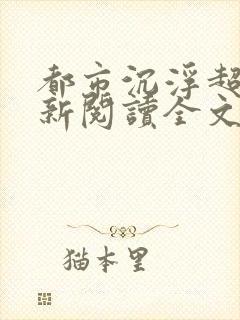 都市沉浮超
新閱讀全文
猫本里